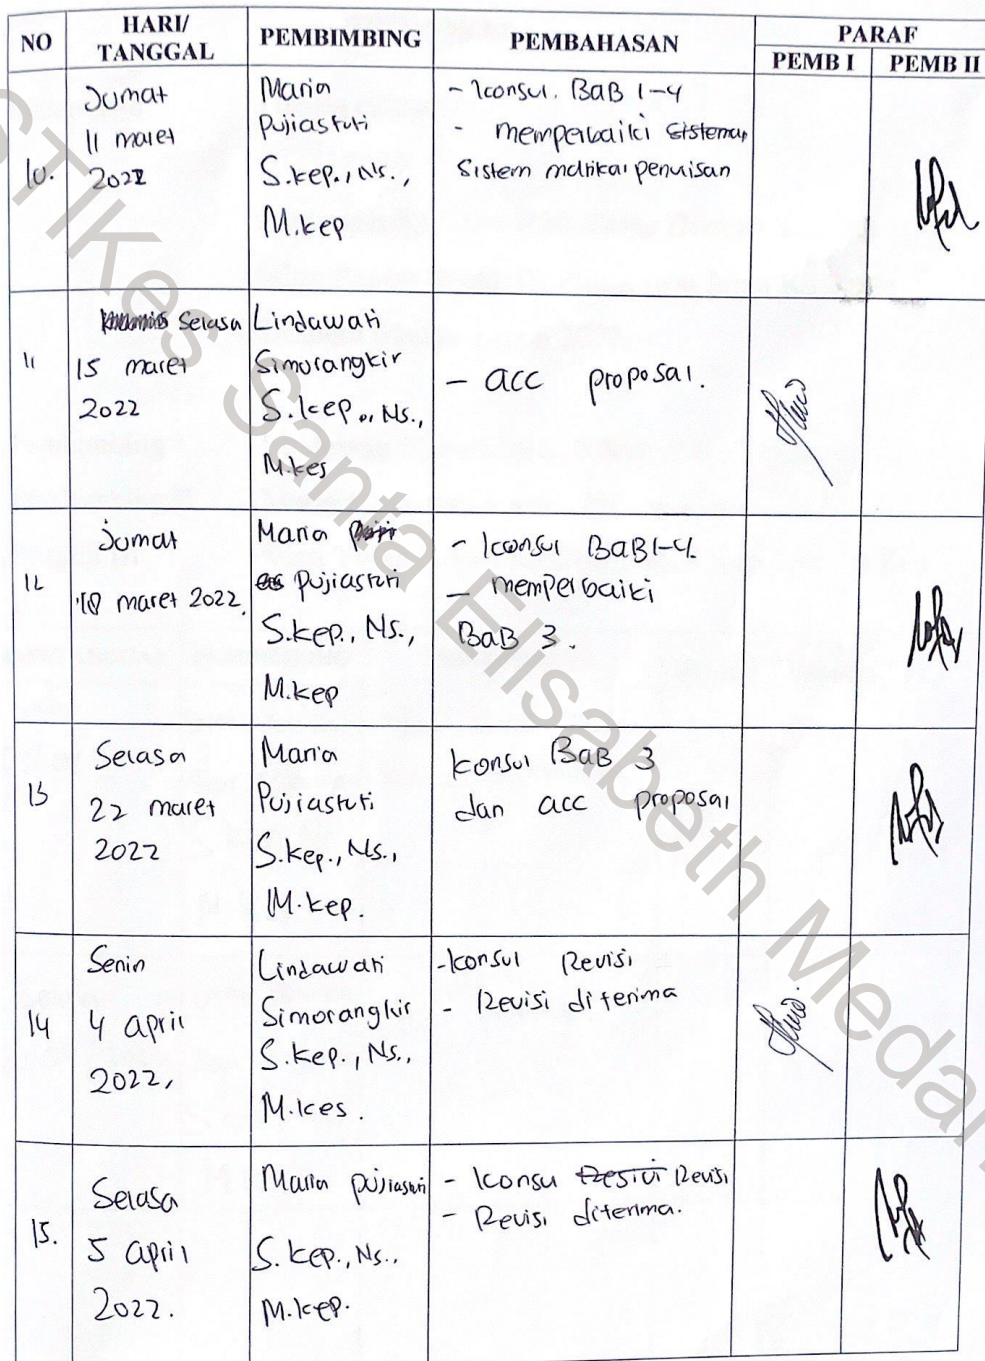 NO HARI/ TANGGAL PEMBIMBING PEMBAHASAN PARAF
PEMB I PEMB II
10.
Jumat
11 maret
2022
Maria
Pujiastuti
S.kep., Ns.,
M.kep
- konsul. BaB 1-4
- memperbaiki sistema
Sistem penulisan
11
Selasa
15 maret
2022
Lindawati
Simorangkir
S.kep., Ns.,
M.kes
- acc proposal.
12
Jumat
18 maret 2022.
Maria
pujiastuti
S.kep., Ns.,
M.kep
- konsul BaB 1-4.
- memperbaiki
BaB 3.
13
Selasa
22 maret
2022
Maria
Pujiastuti
S.kep., Ns.,
M.kep.
konsul BaB 3
dan acc proposal
14
Senin
4 april
2022,
Lindawati
Simorangkir
S.kep., Ns.,
M.kes.
-konsul Revisi
- Revisi diterima
15.
Selasa
5 april
2022.
Maria pujiastuti
S.kep., Ns.,
M.kep.
- konsu Revisi
- Revisi diterima.
STIKes Santa Elisabeth Medan